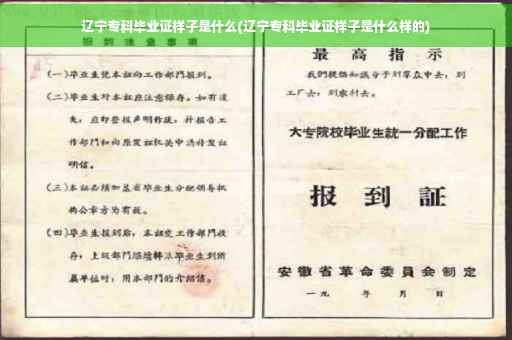 辽宁专科毕业证样子是什么(辽宁专科毕业证样子是什么样的)
报到注意事项
(一)毕业生凭本证向工作部门报到。
(二)毕业生对本证应注意保存。如有遗
失，应即登报声明作废，并报告工
作部门和向原发证机关申请补发证
明信。
(三)本证必须加盖省毕业生分配领导机
构公章方为有效。
(四)毕业生报到后，本证交工作部门收
存；上级部门继续转派毕业生到所
属单位时，用本部门的介绍信。
最高指示
我们提倡知识分子到群众中去，到
工厂去，到农村去。
大专院校毕业生统一分配工作
报到証
安徽省革命委員会制定
一九 年 月 日